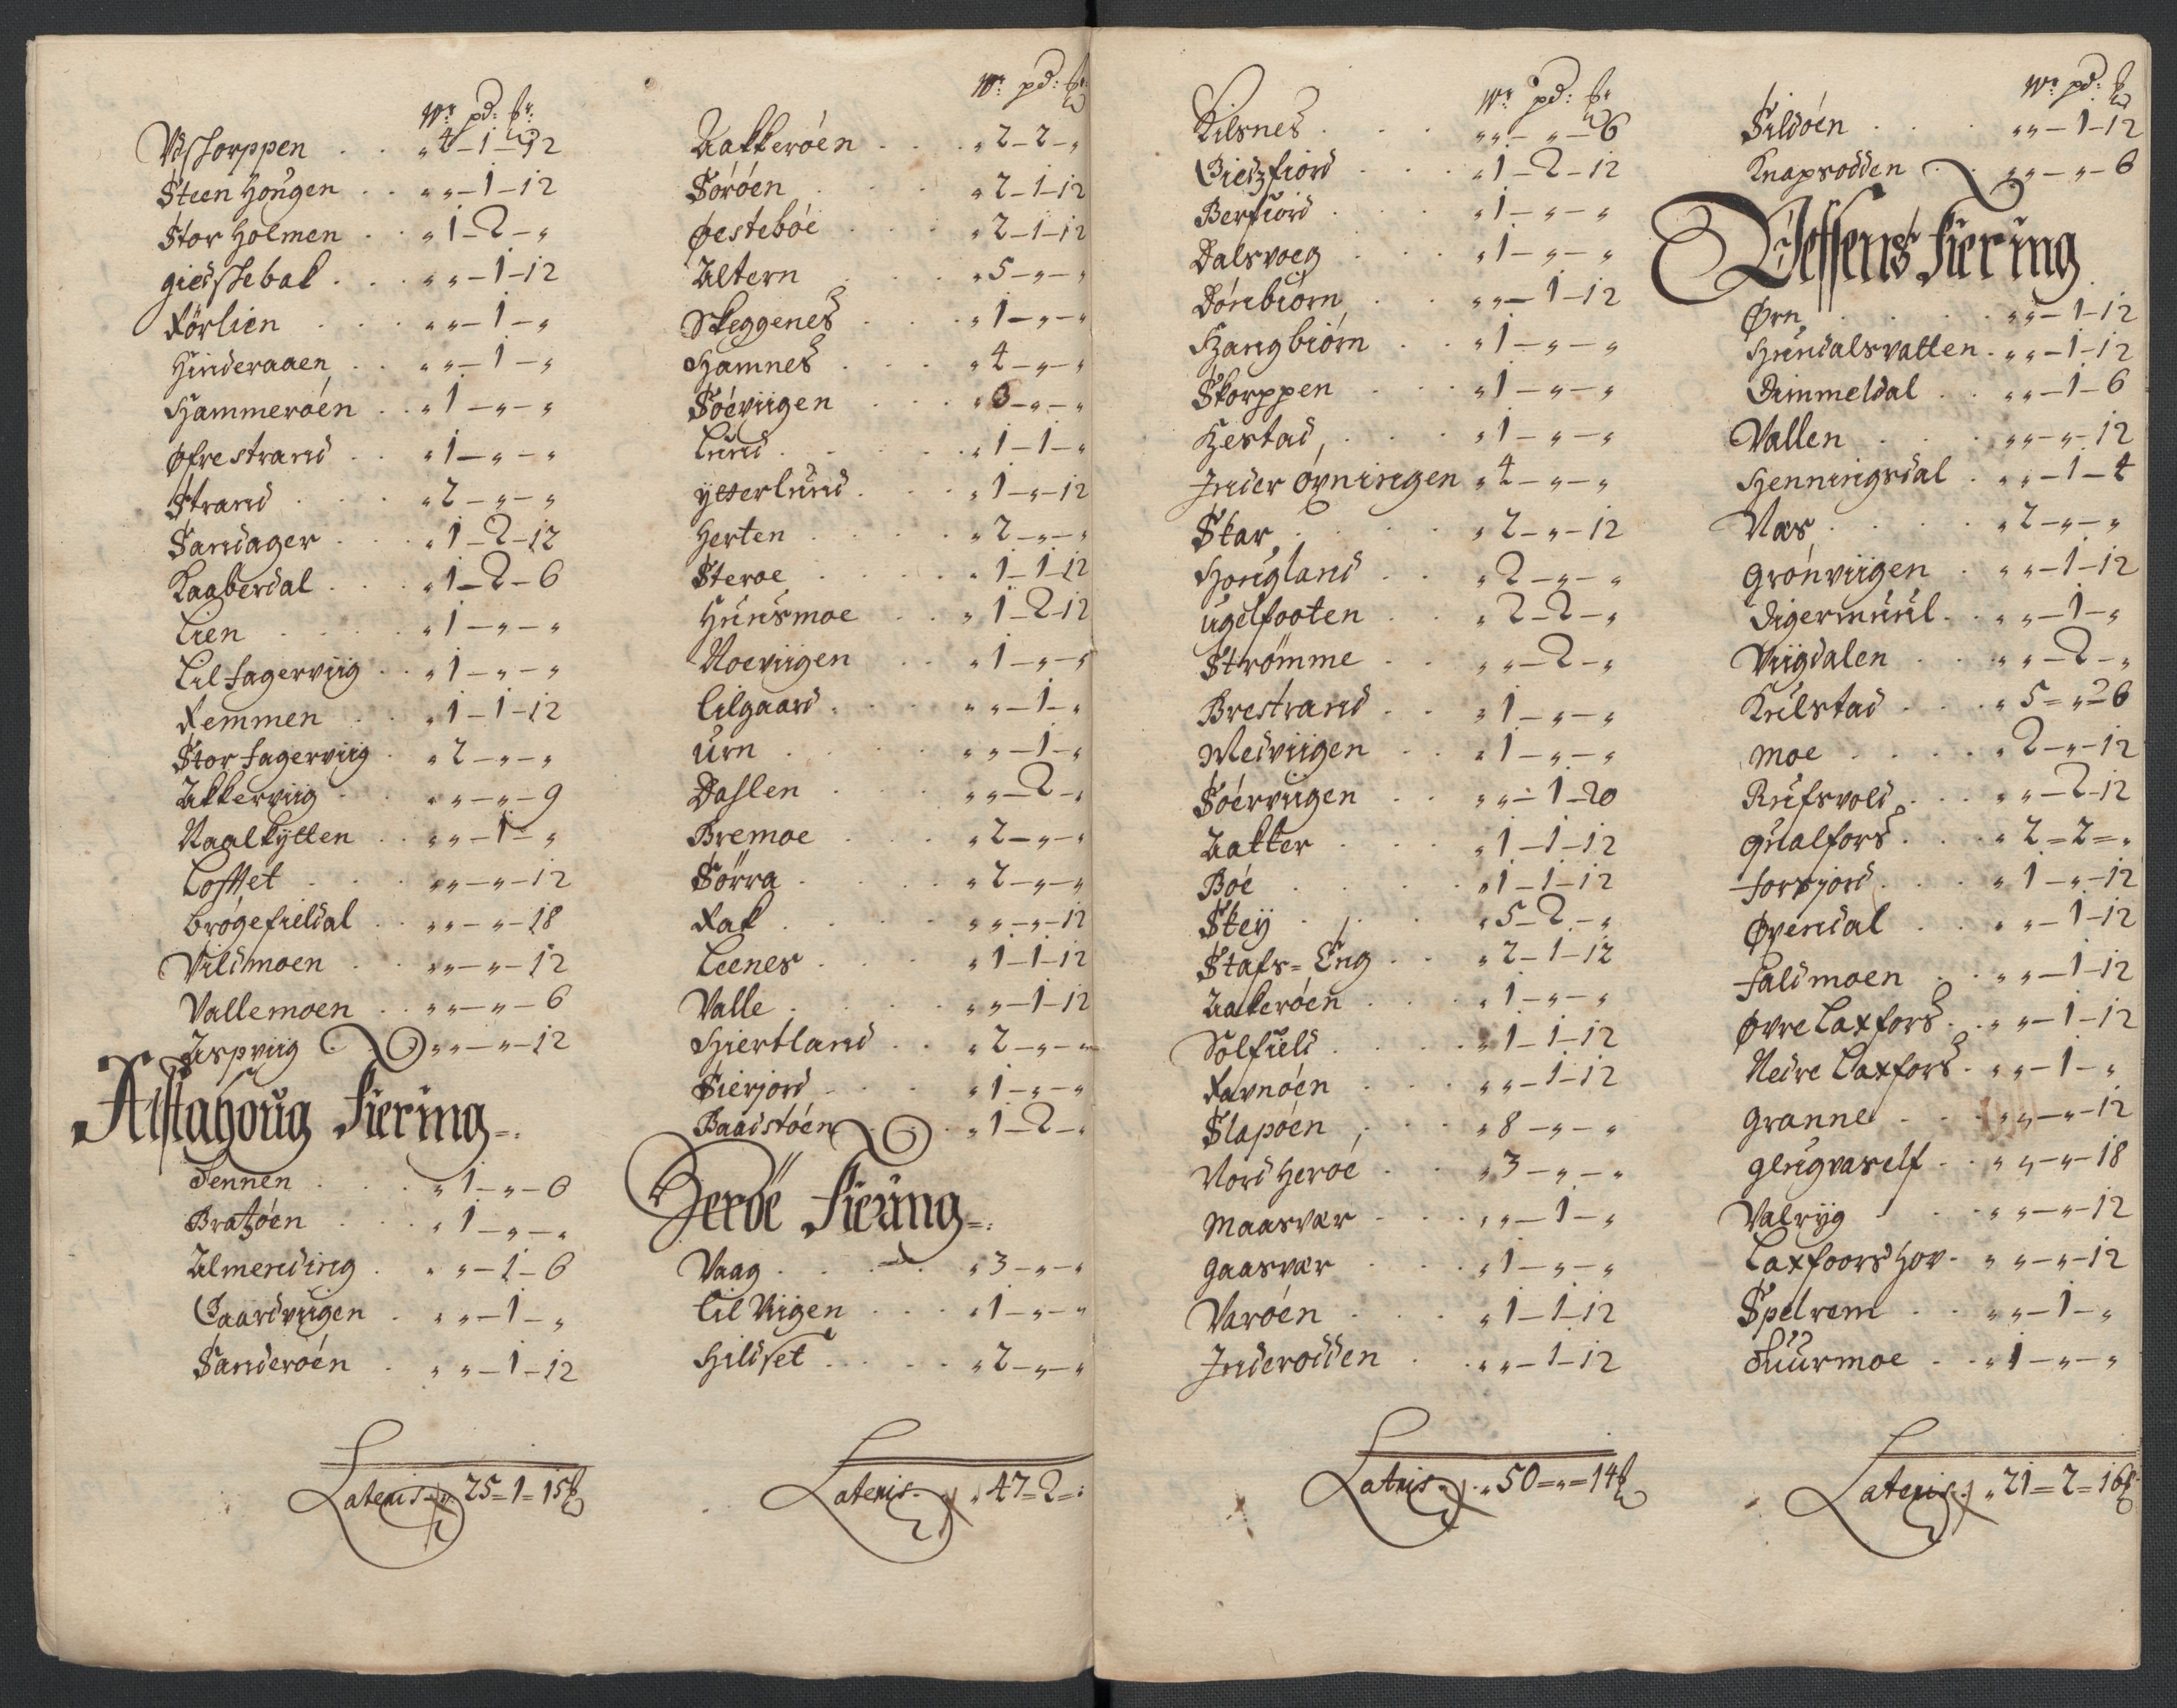 Wr: pd: ſr:
Vdſtorppen . . „4–1–12
Steen Hougen . . „ „–1–12
Stor Holmen . . „1–2–„
giedſkebak . . . „ „–1–12
Rörlien . . . „ „–1–„
Hinderaaen . . „ „–1–„
Hammeröen . . „1–„–„
Øfre strand . . „1–„–„
Strand . . . „2–„–„
Sandager . . . „1–2–12
Kaaberdal . . . „1–2–6
Lien . . . . „1–„–„
Lil fagerviig . . „1–„–„
Remmen . . „1–1–12
Stor fagerviig . „2–„–„
Akkerviig . . „ „–„–9
Naalkytten . . „ „–1–„
Lofftet . . . „ „–„–12
Brøgefieldal . . „ „–„–18
Vildmoen . . „ „–„–12
Vallemoen . . „ „–„–6
Aspviig „ „–„–12
Alstahoug Fiering
Tennen . . . „1–„–6
Bratzöen . . . „1–„–„
Almending . „ „–1–6
Gaardviigen . „ „–1–„
Sanderöen . „ „–1–12
Lateris . „25=1=15
Wr: pd:
Aakkeröen . . . „2–2–„
Söröen . . . „2–1–12
Øesteböe . . . „2–1–12
Altern . . . „5–„–„
Skeggenes . . . „1–„–„
Hamnes . . . „4–„–„
Söeviigen . . . „6–„–„
Lund . . . . „1–1–„
Ytterlund . . . „1–„–12
Herten . . . „2–„–„
Steroe . . . „1–1–12
Hunsmoe . . „1–2–12
Noeviigen . . „1–„–„
Lilgaard . . . „ „–1–„
Urn . . . . „ „–1–„
Dahlen . . . „ „–2–„
Bremoe . . . „2–„–„
Sörra . . . „2–„–„
Rak . . . . „ „–„–12
Leenes . . . „1–1–12
Valle . . . . „ „–1–12
Hiertland . . „2–„–„
Sierjord . . . „1–„–„
Baadstöen „1–2–„
Heröe Fiering
Vaag . . . „3–„–„
Lil Viigen . . . „1–„–„
Hildset . . . . „2–„–„
Lateris . „47=2=„
Wr: pd: ſr
Kilsnes . . . „ „–„–6
Giedzfiord . . . „1–2–12
Berfiord . . . „1–„–„
Dalsvoeg . . „1–„–„
Dönbiörn . . „ „–1–12
Hangbiörn . . „1–„–„
Skorppen . . . „1–„–„
Hestad . . . „1–„–„
Inder övningen „4–„–„
Skar . . . „2–„–12
Hougland . . „2–„–„
Ugelfooten . . „2–2–„
Strömme . . „ „–2–„
Brestrand . . „1–„–„
Medviigen . . „1–„–„
Söerviigen . . „ „–1–20
Aakter . . . „1–1–12
Böe . . . . „1–1–12
Skey . . . „5–2–„
Stafs=Eng . . „2–1–12
Aakeröen . . „1–„–„
Solfield . . . „1–1–12
Ravnöen . . . „ „–1–12
Slapöen . . . „8–„–„
Nord Heröe . . „3–„–„
Maasvær . . . „ „–1–„
Gaasvær . . „1–„–„
Varöen . . . „1–1–12
Inderodden . . „ „–1–12
Lateris . „50=„=14
Wr: pd: ſr
Sildöen . . . „ „–1–12
Knapsodden „ „–„–6
Vefsens Fiering
Ørn . . . „ „–1–12
Hundalsvatten . „ „–1–12
Dimmeldal . . „ „–1–6
Vallen . . . „ „–„–12
Henningsdal . „ „–1–4
Næs . . . . „2–„–„
Grönviigen . „ „–1–12
Digermuul . . „ „–1–„
Viigdalen . . „ „–2–„
Kulstad . . . „5=„=26
Moe . . . . „2–„–12
Rufsvold . . „ „–2–12
Gualfors . . . „2=2=„
Forsjord . . . „1–„–12
Øvendal . . „ „–1–12
Faldmoen . . „ „–1–12
Øvre Laxfors . „ „–1–12
Nedre Laxfors . „ „–1–„
Granne . . „ „–„–12
Glugvaself . . „ „–„–18
Valryg . . „ „–„–12
Laxfoors Hov . „ „–„–12
Spelrem . . „ „–1–„
Fuurmoe . . „1–„–„
Lateris . „21=2=16